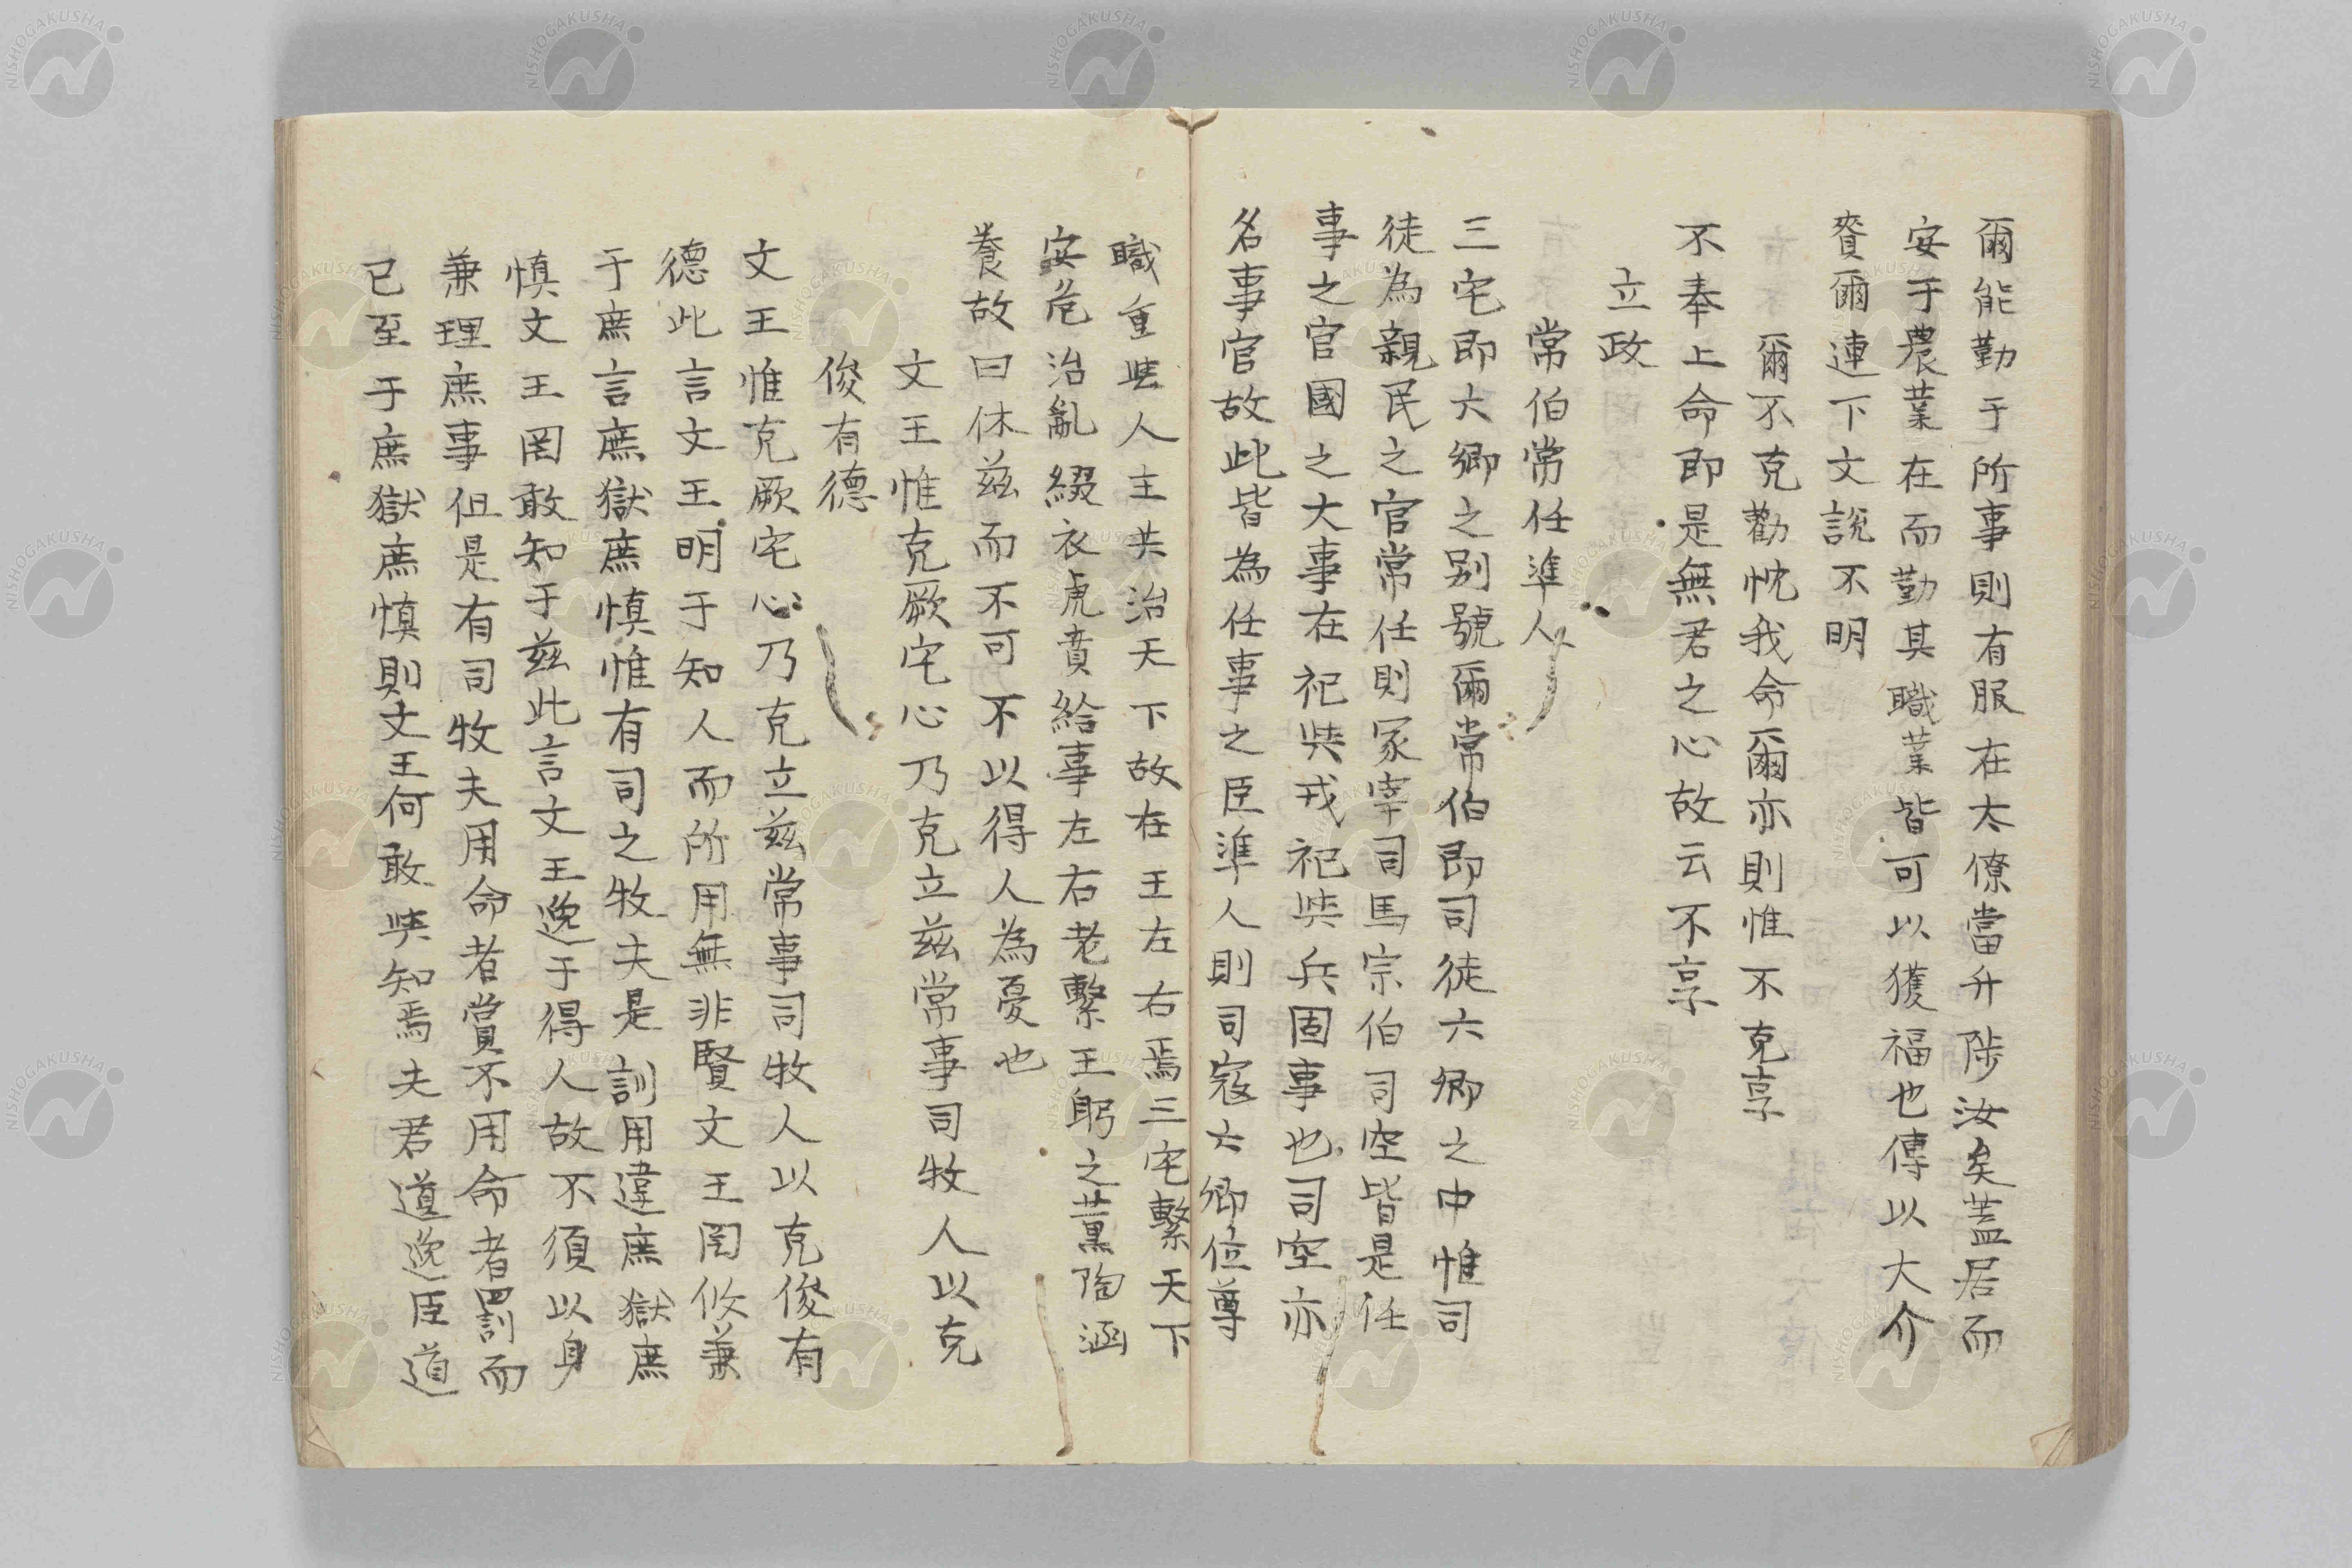 爾能勤于所事則有服在大僚當升陟汝矣蓋居而
安于農業在而勤其職業皆可以獲福也傳以大介
賚爾連下文說不明
爾不克勸忱我命爾亦則惟不克享
不奉上命即是無君之心故云不享
立政
常伯常任準人
三宅即大卿之別號爾常伯即司徒六卿之中惟司
徒為親民之官常任則冢宰司馬宗伯司空皆是任
事之官國之大事在祀與戎祀與兵固事也司空亦
名事官故此皆為任事之臣準人則司寇六卿位尊
職重與人主共治天下故在王左右焉三宅繫天下
安危治亂綴衣虎賁給事左右老繫王躬之薰陶涵
養故曰休茲而不可不以得人為憂也
文王惟克厥宅心乃克立茲常事司牧人以克
俊有德
文王惟克厥宅心乃克立茲常事司牧人以克俊有
德此言文王明于知人而所用無非賢文王罔攸兼
于庶言庶獄庶慎惟有司之牧夫是訓用違庶獄庶
慎文王罔敢知于茲此言文王逸于得人故不須以身
兼理庶事但是有司牧夫用命者賞不用命者罰而
已至于庶獄庶慎則文王何敢與知焉夫君道逸臣道
NISHOGAKUSHA